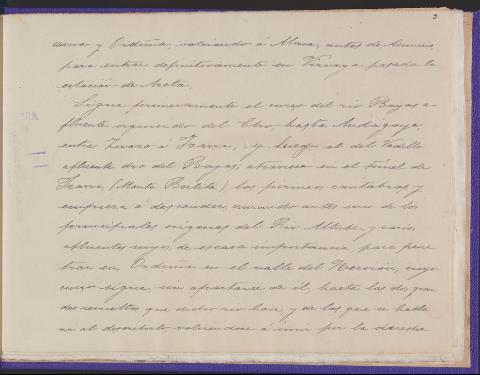 3
y Orduña, volviendo á Alava, antes de
para entrar definitivamente en Vizcaya pasada la
estación de Areta.
Sigue primeramente el curso del rio Bayas a-
fluente izquierdo del Ebro, hasta Andagoya,
entre Zuazo é Izarra, y luego el del Vadillo
afluente dro del Bayas, atraviesa en el túnel de
Izarra, (Monte ), los pirineos cantabros y
empieza á descender, cruzando antes uno de los
principales origenes del Rio Altube, y varios
afluentes suyos, de escasa importancia, para pene
trar en Orduña en el valle del Nervión, cuyo
curso sigue, sin apartarse de él, hasta las dos gran
des revueltas que dicho rio hace, y de las que se habla
al describirlo volviendose á unir por la derecha